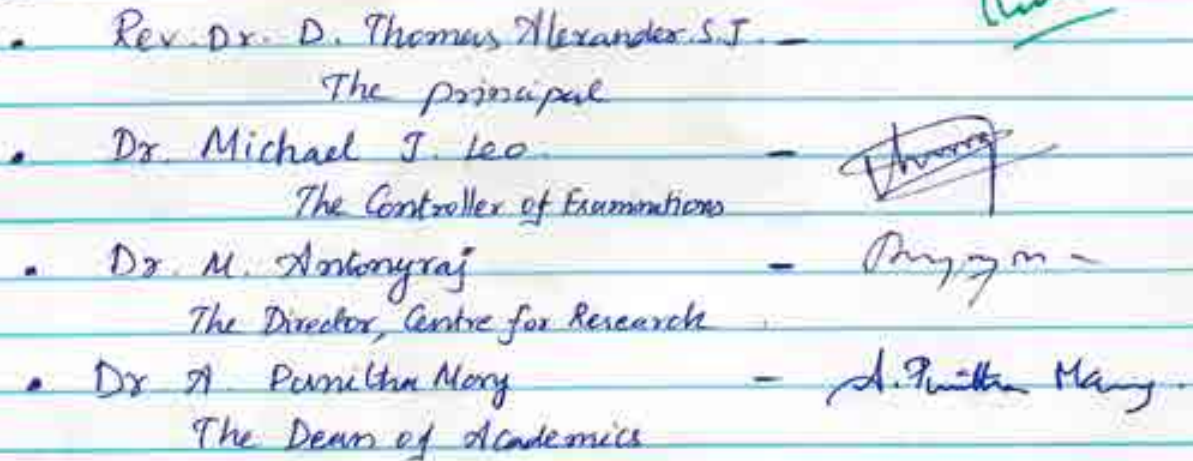 • Rev. Dr. D. Thomas Alexander. S.J. –
The principal
• Dr. Michael J. Leo. –
The Controller of Examinations
• Dr. M. Antonyraj –
The Director, Centre for Research
• Dr A. Punitha Mary – A. Punitha Mary.
The Dean of Academics